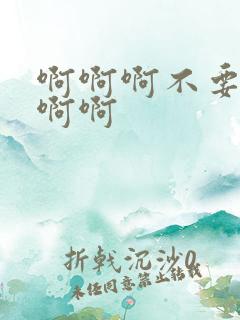 啊啊啊不要
啊啊
折戟沉沙0
未经同意禁止转载